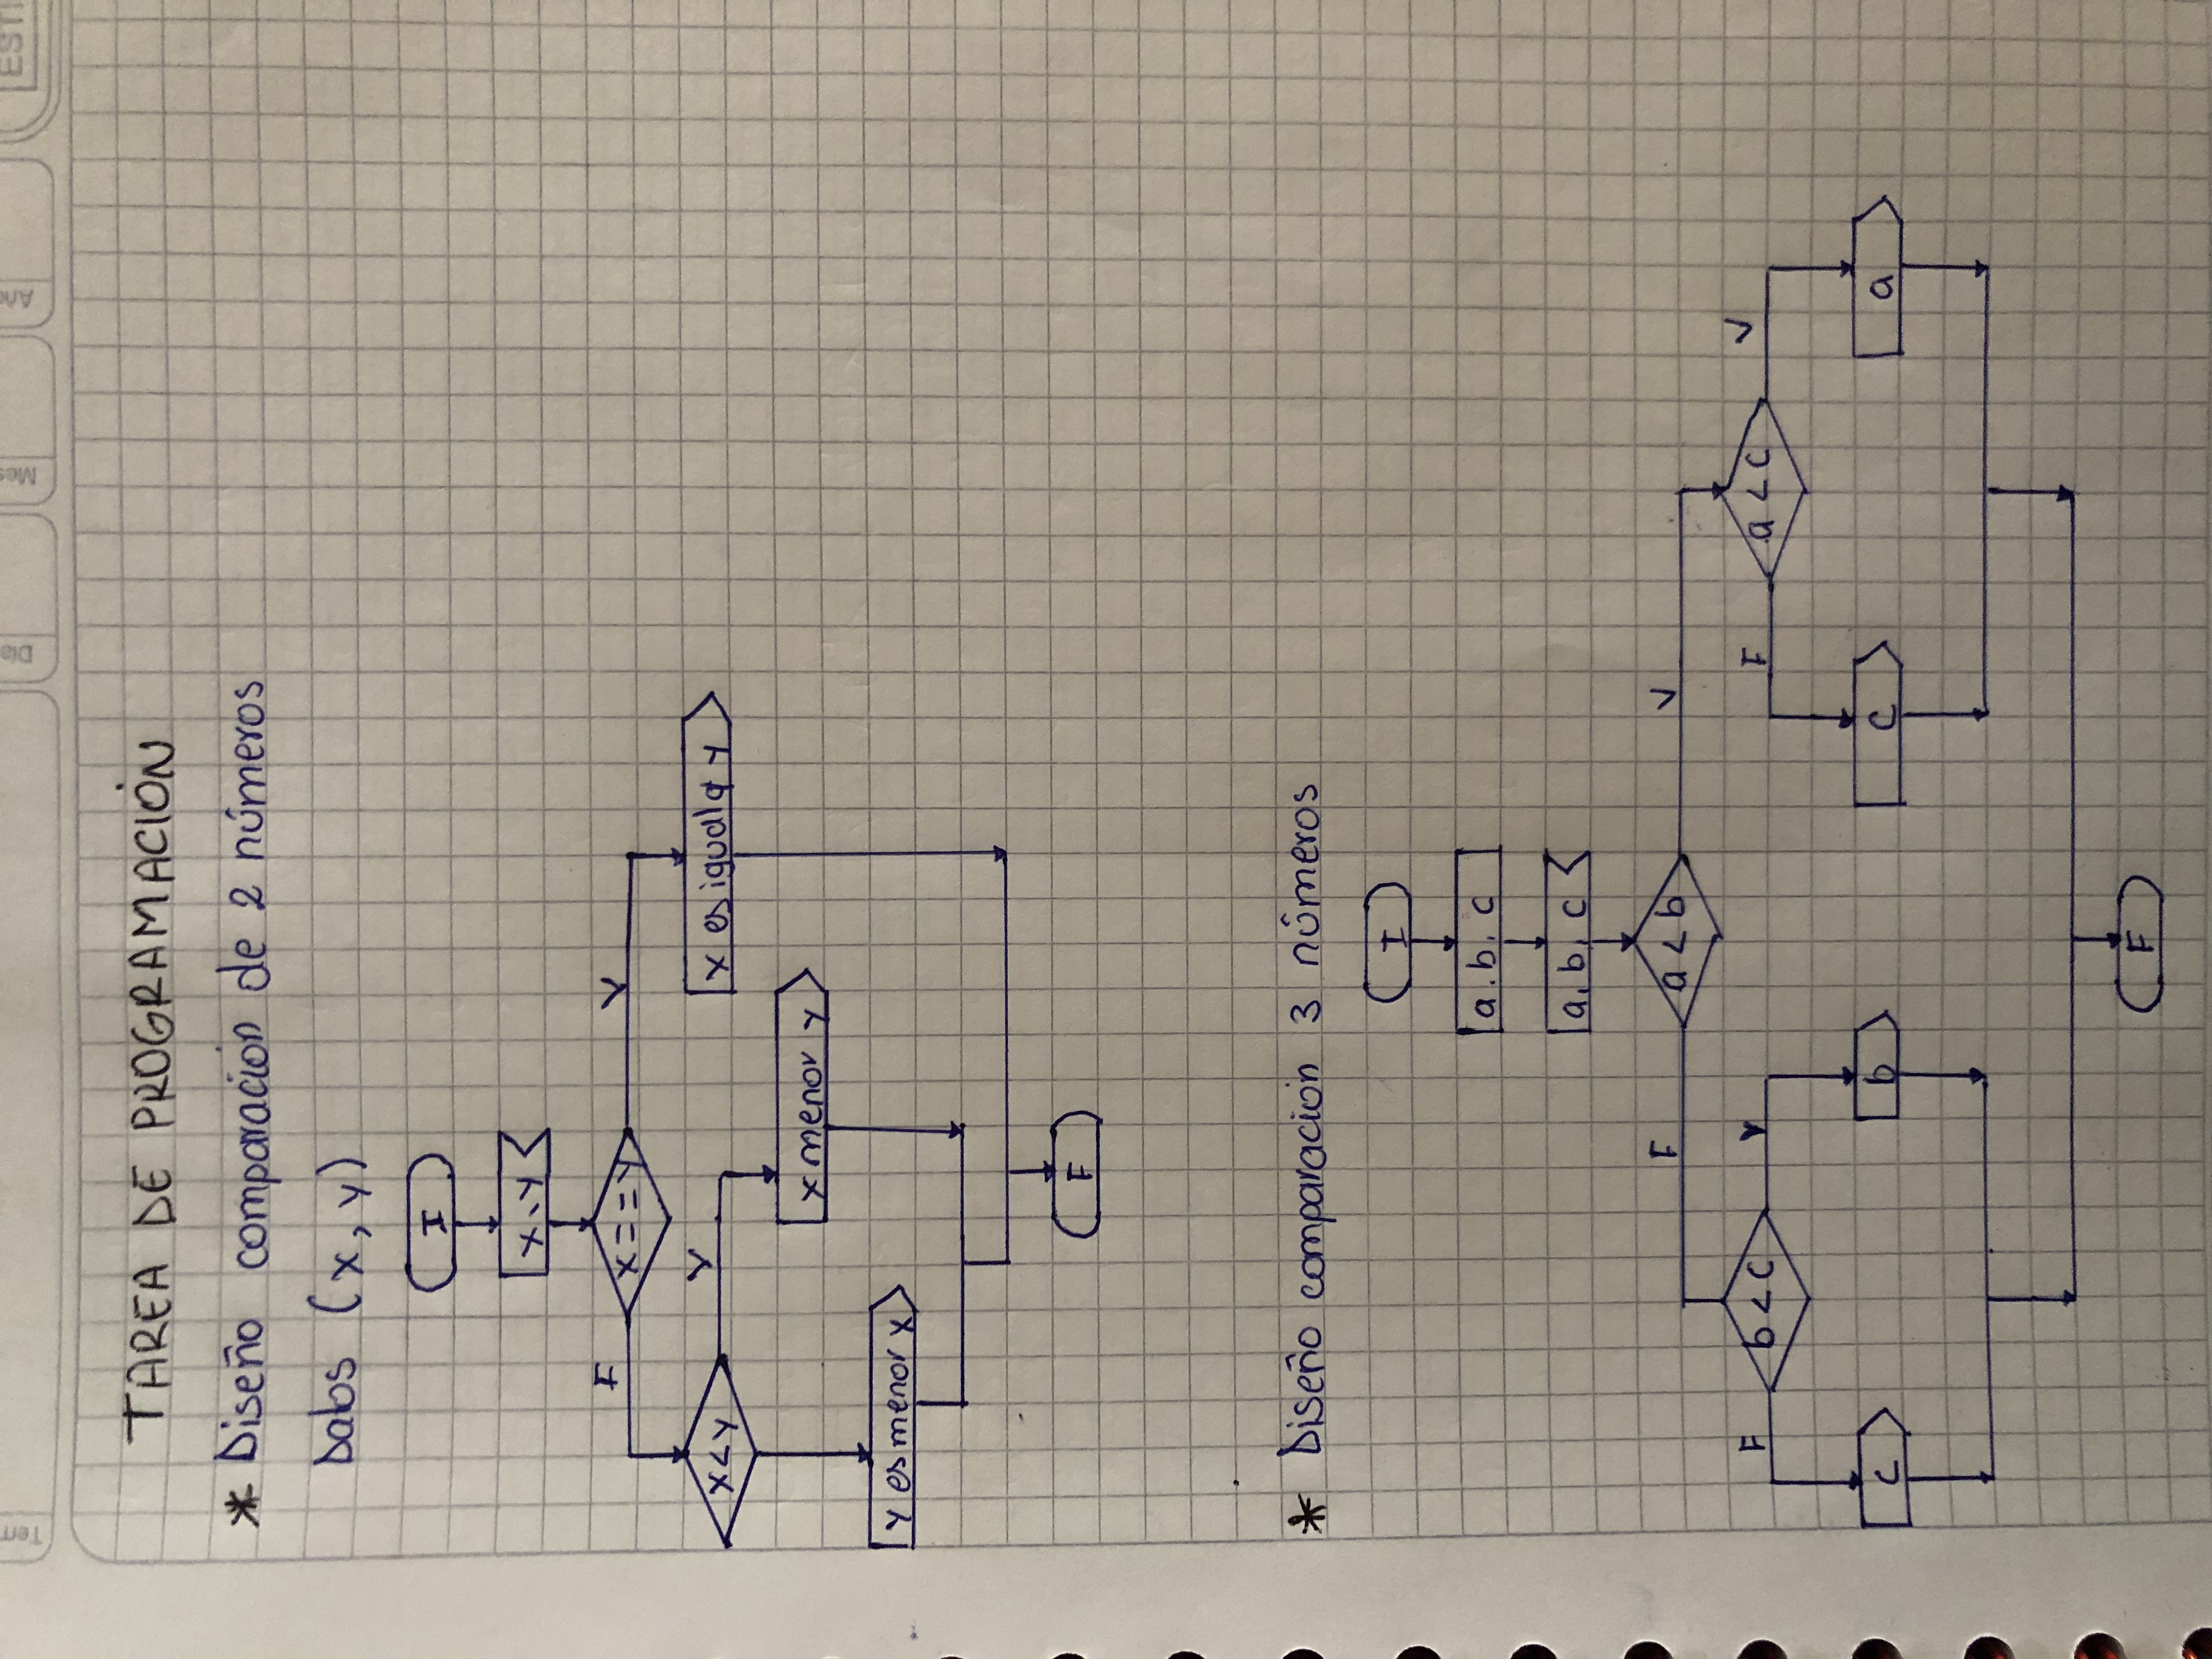 TAREA DE PROGRAMACIÓN
* Diseño comparación de 2 números
Datos (x, y)
I
x, y
F x==y V
x<y V x es igual a y
x menor y
y es menor x
F
* Diseño comparación 3 números
I
a. b. c
a, b, c
F a < b V
F b < c V F a < c V
c b c a
F